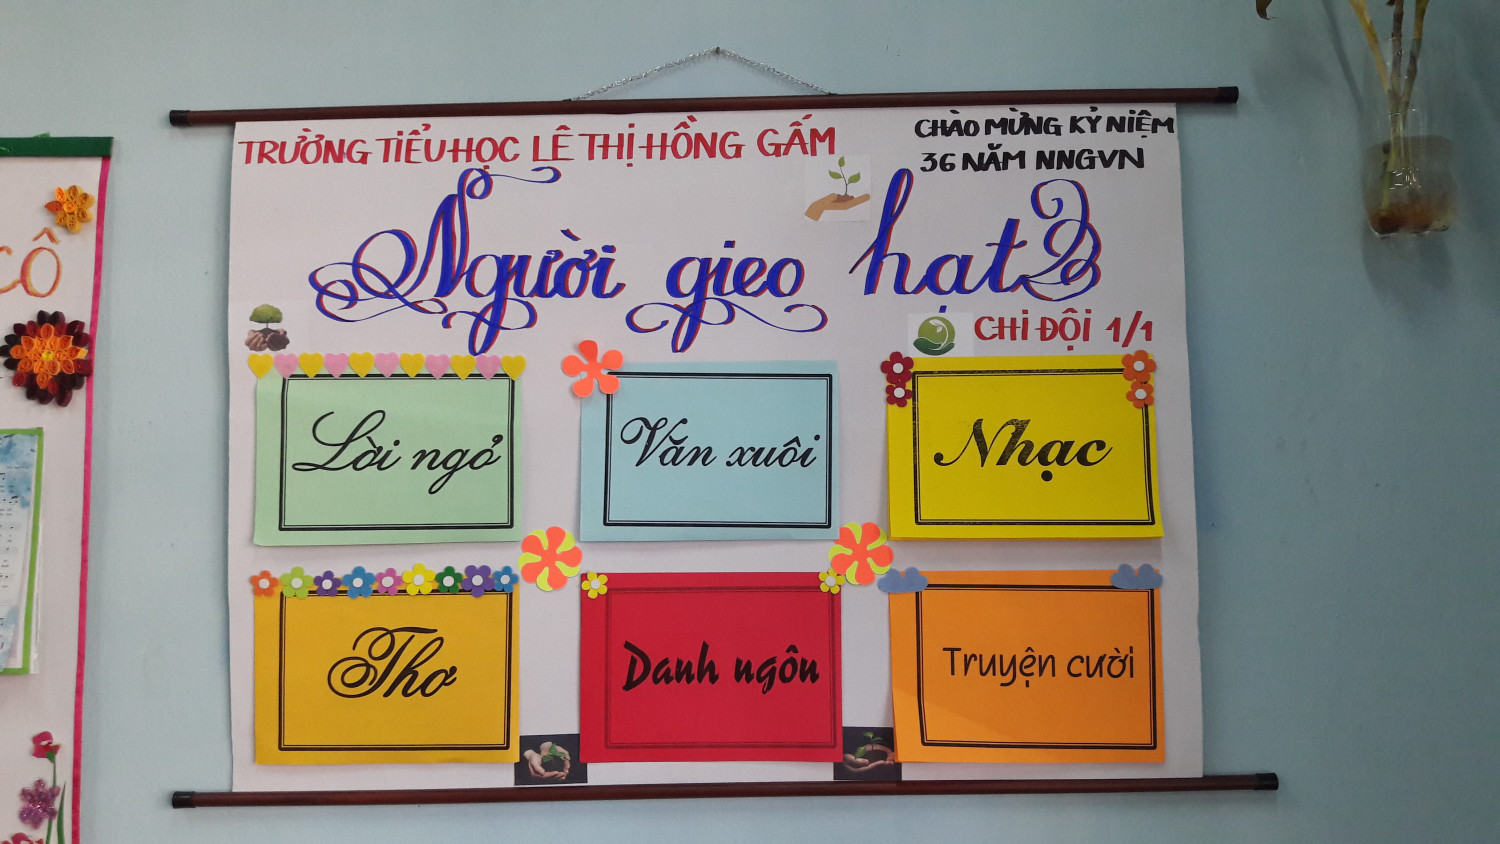 TRƯỜNG TIỂU HỌC LÊ THỊ HỒNG GẤM
CHÀO MỪNG KỶ NIỆM
36 NĂM NNGVN
Người gieo hạt
CHI ĐỘI 1/1
CÔ
Lời ngỏ
Văn xuôi
Nhạc
Thơ
Danh ngôn
Truyện cười